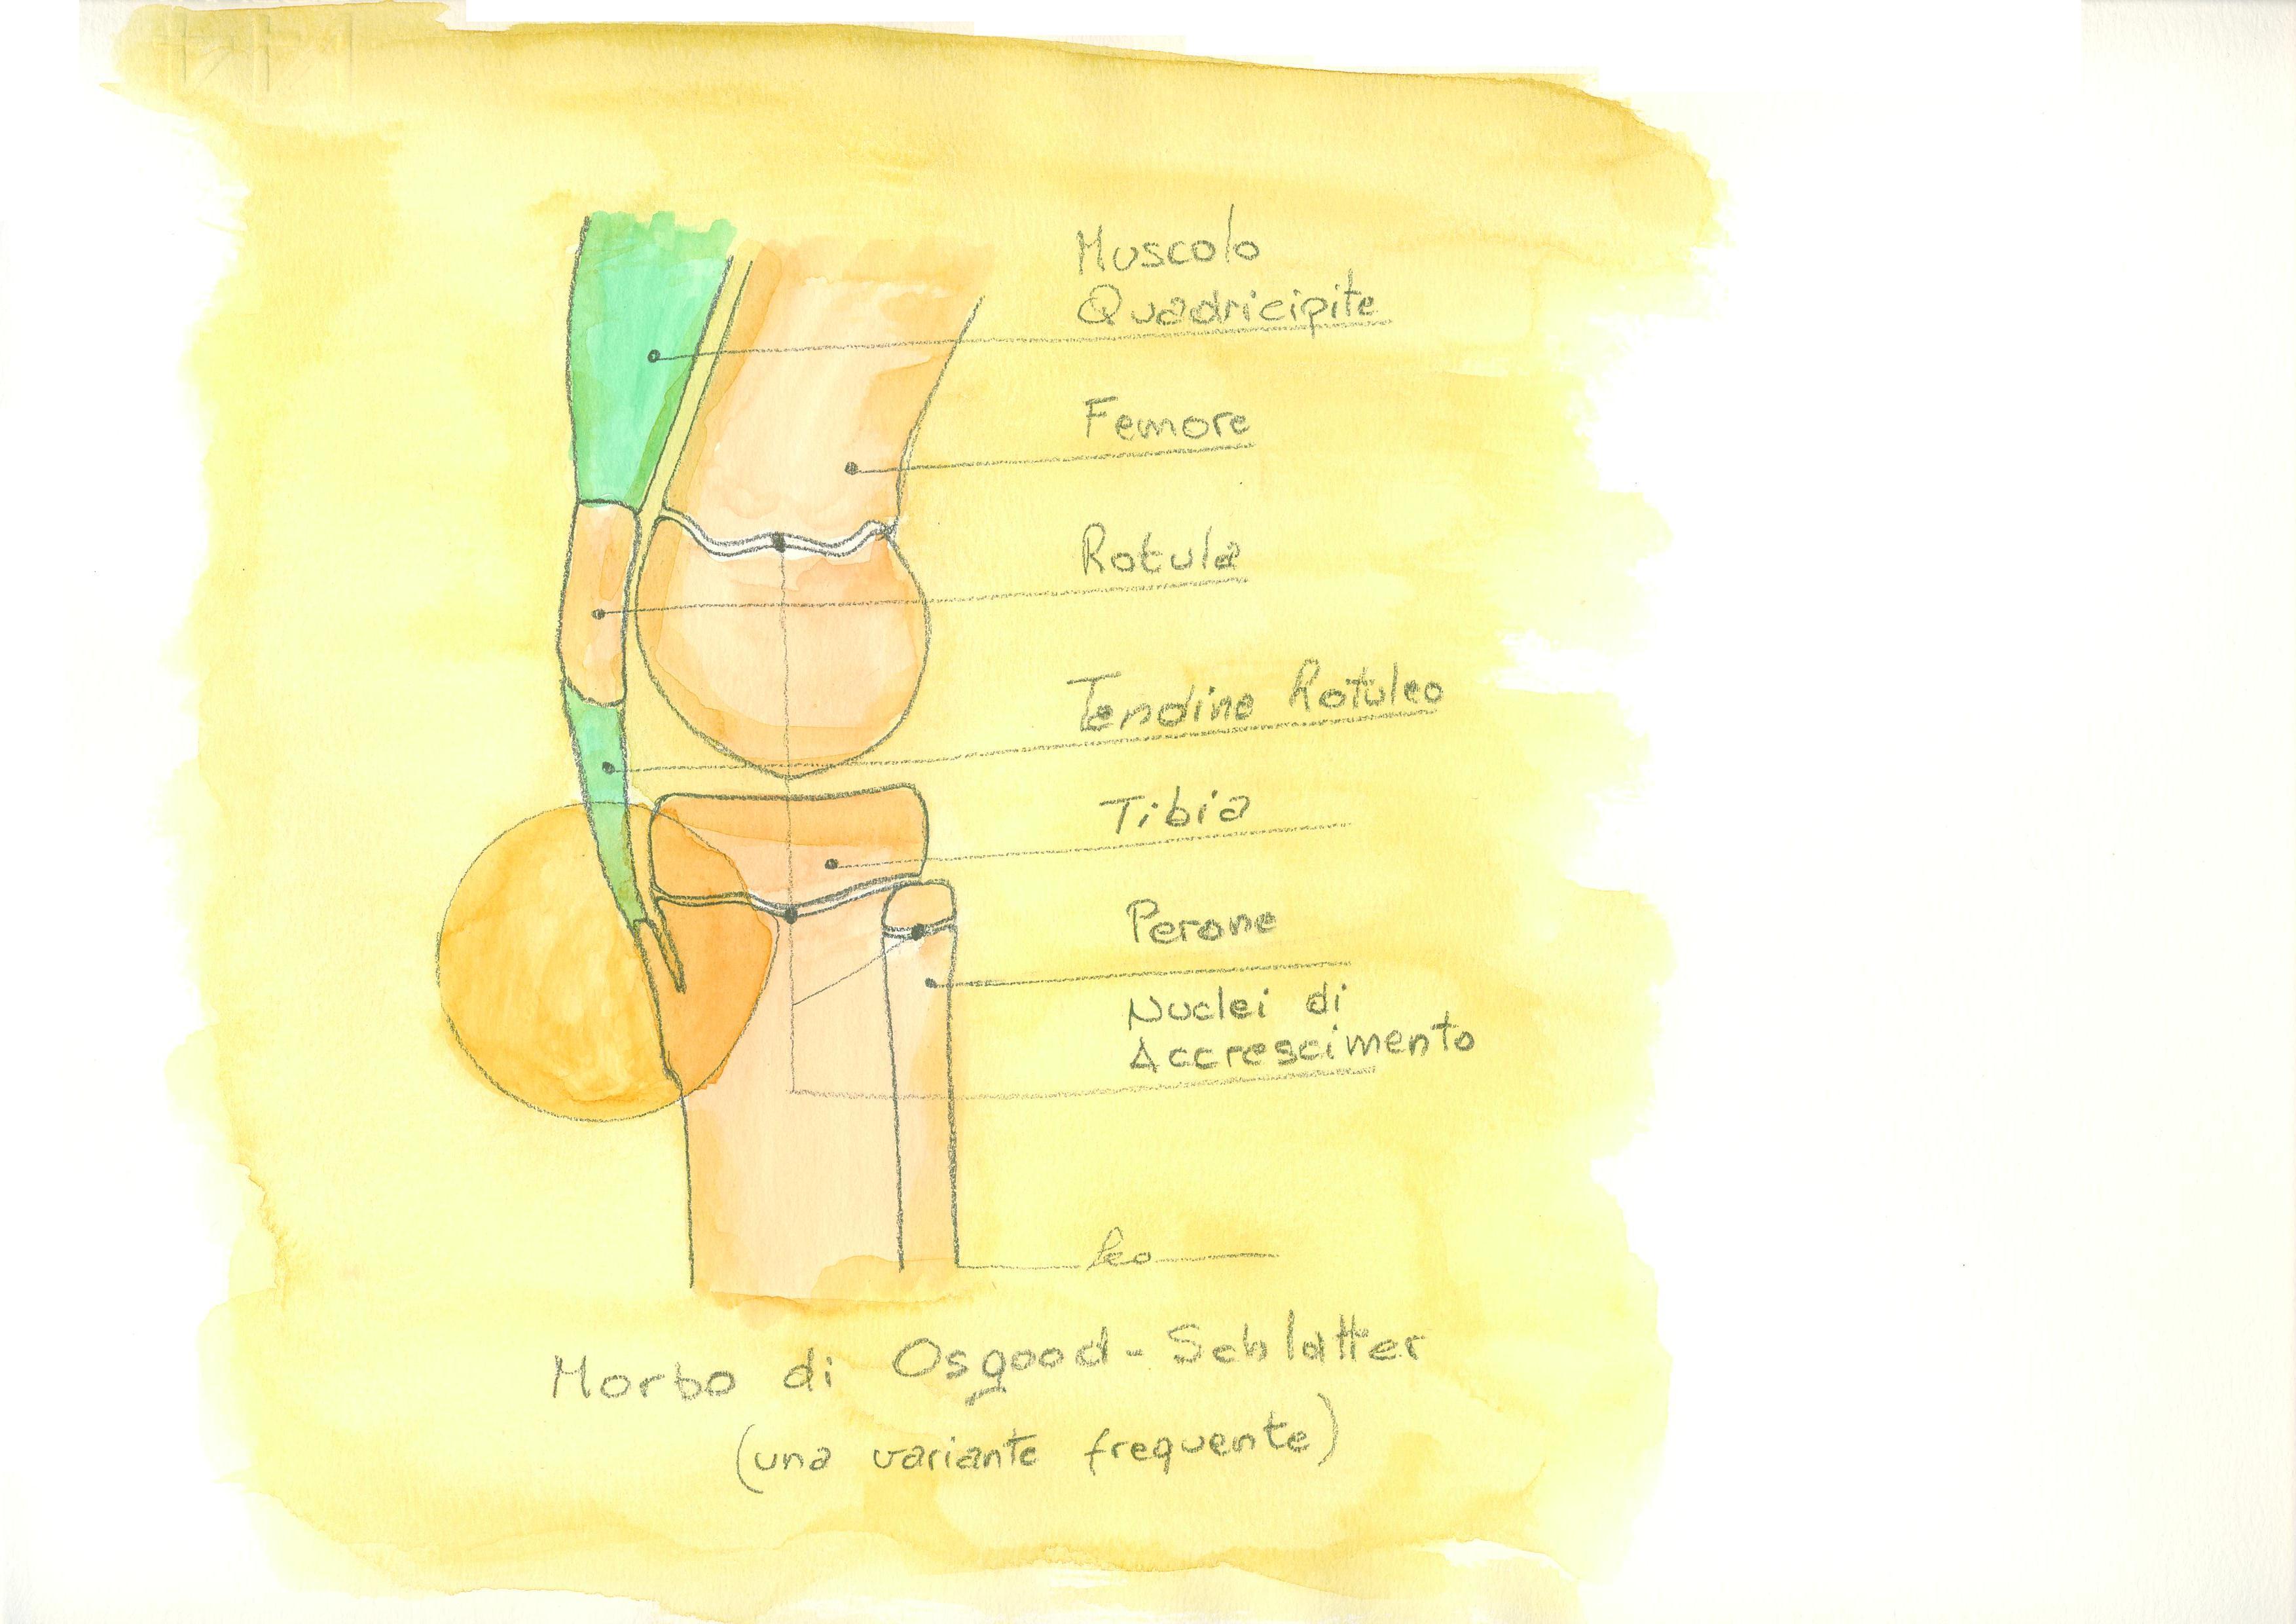 Muscolo
Quadricipite
Femore
Rotula
Tendine Rotuleo
Tibia
Perone
Nuclei di
Accrescimento
leo
Morbo di Osgood-Schlatter
(una variante frequente)